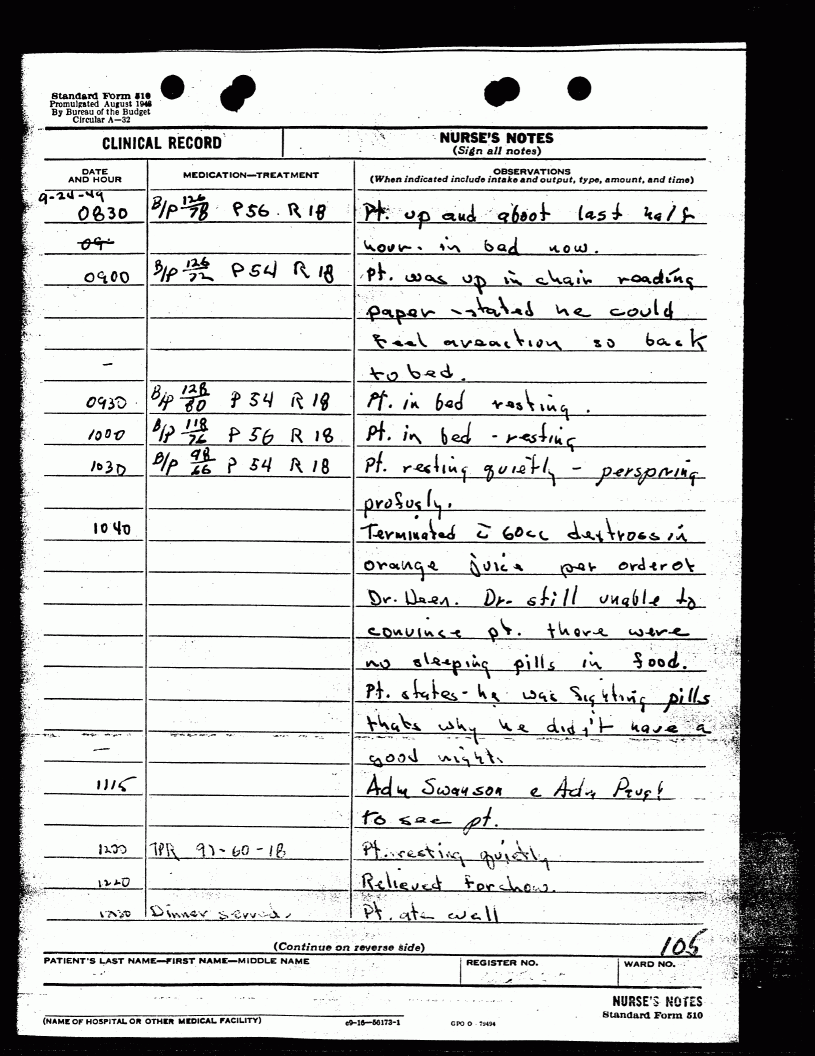 Standard Form 510
Promulgated August 1948
By Bureau of the Budget
Circular A—32
CLINICAL RECORD
NURSE'S NOTES
(Sign all notes)
DATE AND HOUR
MEDICATION—TREATMENT
OBSERVATIONS
(When indicated include intake and output, type, amount, and time)
9-24-49
0830 B/P 126/78 P 56 R 18 Pt. up and about last half
09- hour. in bed now.
0900 B/P 126/72 P 54 R 18 Pt. was up in chair reading
paper - stated he could
feel a reaction so back
— to bed.
0930 B/P 128/80 P 54 R 18 Pt. in bed resting.
1000 B/P 118/76 P 56 R 18 Pt. in bed - resting
1030 B/P 98/66 P 54 R 18 Pt. resting quietly - perspiring
profusly.
1040 Terminated c̄ 60cc dextrose in
orange juice per order of
Dr. Deen. Dr. still unable to
convince pt. there were
no sleeping pills in food.
Pt. states - he was fighting pills
thats why he didn't have a
— good night.
1115 Adm Swanson e Adm
to see pt.
1200 TPR 97-60-18 Pt. resting quietly
1220 Relieved for chow.
1230 Dinner served. Pt. ate well
(Continue on reverse side)
105
PATIENT'S LAST NAME—FIRST NAME—MIDDLE NAME
REGISTER NO.
WARD NO.
NURSE'S NOTES
Standard Form 510
(NAME OF HOSPITAL OR OTHER MEDICAL FACILITY)
c9—16—56173-1
GPO O - 79494